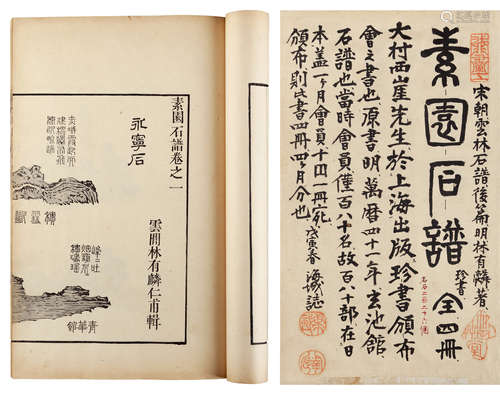 素園石譜卷之一
永寧石
雲間林有麟仁甫輯
青華館
宋朝雲林石譜後篇明林有麟著
珍書
素園石譜全四冊
名石二百二十六個
大村西崖先生於上海出版珍書頒布
會之書也原書明萬曆四十一年玄池館
石譜也當時會員僅百八十名故百八十部在日
本蓋一ヶ月會員十四一冊宛
頒布則此書四冊四ヶ月分也
戊寅春
誌